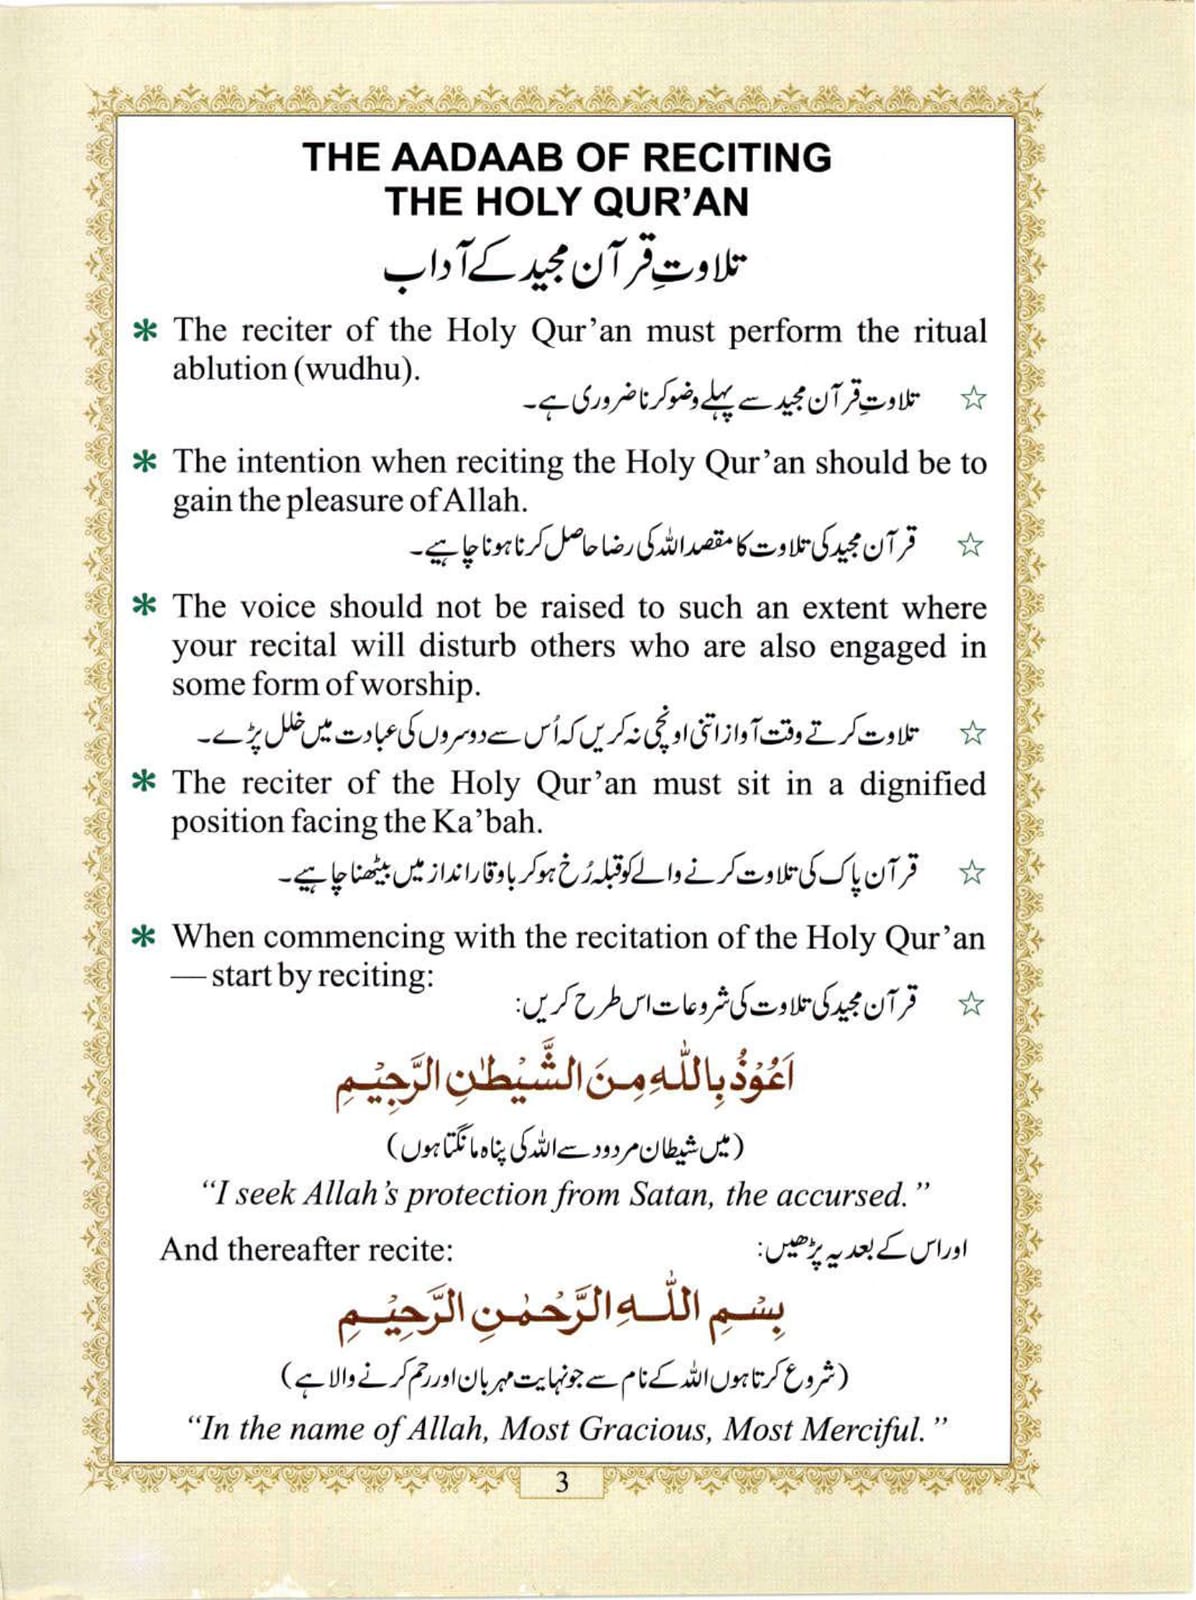 THE AADAAB OF RECITING
THE HOLY QUR’AN
تلاوتِ قرآن مجید کے آداب
* The reciter of the Holy Qur’an must perform the ritual
ablution (wudhu).
☆ تلاوتِ قرآن مجید سے پہلے وضو کرنا ضروری ہے۔
* The intention when reciting the Holy Qur’an should be to
gain the pleasure of Allah.
☆ قرآن مجید کی تلاوت کا مقصد اللہ کی رضا حاصل کرنا ہونا چاہیے۔
* The voice should not be raised to such an extent where
your recital will disturb others who are also engaged in
some form of worship.
☆ تلاوت کرتے وقت آواز اتنی اونچی نہ کریں کہ اُس سے دوسروں کی عبادت میں خلل پڑے۔
* The reciter of the Holy Qur’an must sit in a dignified
position facing the Ka’bah.
☆ قرآن پاک کی تلاوت کرنے والے کو قبلہ رُخ ہو کر باوقار انداز میں بیٹھنا چاہیے۔
* When commencing with the recitation of the Holy Qur’an
— start by reciting:
☆ قرآن مجید کی تلاوت کی شروعات اس طرح کریں:
اَعُوْذُ بِاللّٰهِ مِنَ الشَّيْطٰنِ الرَّجِيْمِ
(میں شیطان مردود سے اللہ کی پناہ مانگتا ہوں)
“I seek Allah’s protection from Satan, the accursed.”
And thereafter recite: اور اس کے بعد یہ پڑھیں:
بِسْمِ اللّٰهِ الرَّحْمٰنِ الرَّحِيْمِ
(شروع کرتا ہوں اللہ کے نام سے جو نہایت مہربان اور رحم کرنے والا ہے)
“In the name of Allah, Most Gracious, Most Merciful.”
3